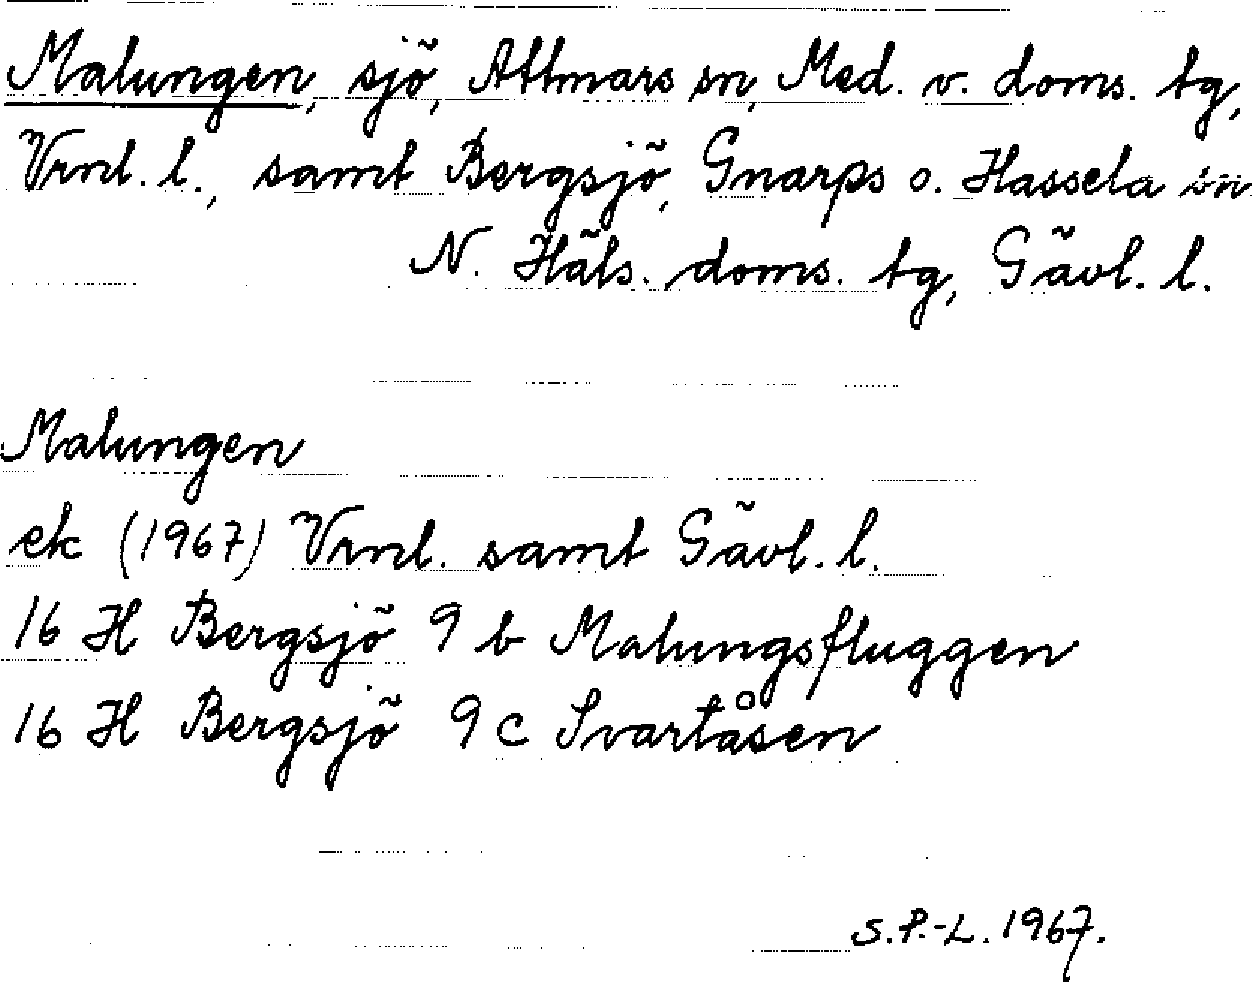 Malungen, sjö, Attmars sn, Med. v. doms. tg,
Vrnl. l., samt Bergsjö, Gnarps o. Hassela sn
N. Häls. doms. tg, Gävl. l.
Malungen
ek (1967) Vrnl. samt Gävl. l.
16 H Bergsjö 9 b Malungsfluggen
16 H Bergsjö 9 c Svartåsen
S.P.-L. 1967.